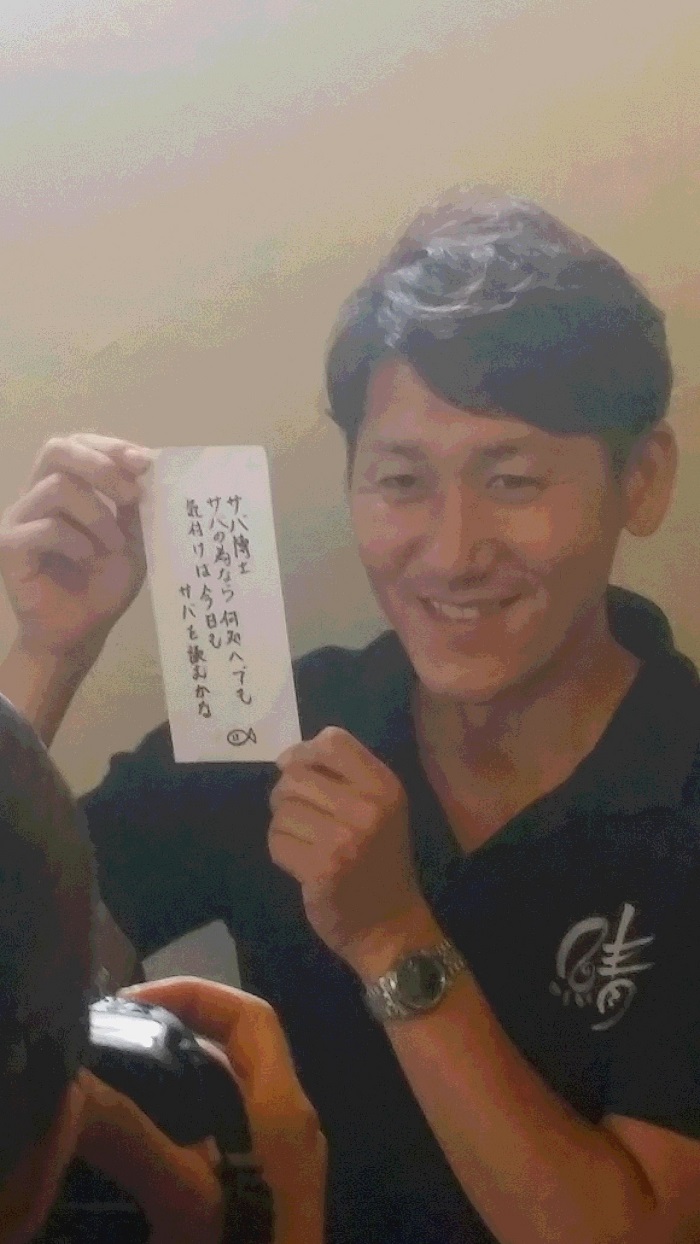 サバ博士
サバの為なら何処へでも
気付けば今日も
サバを読むかな
鯖